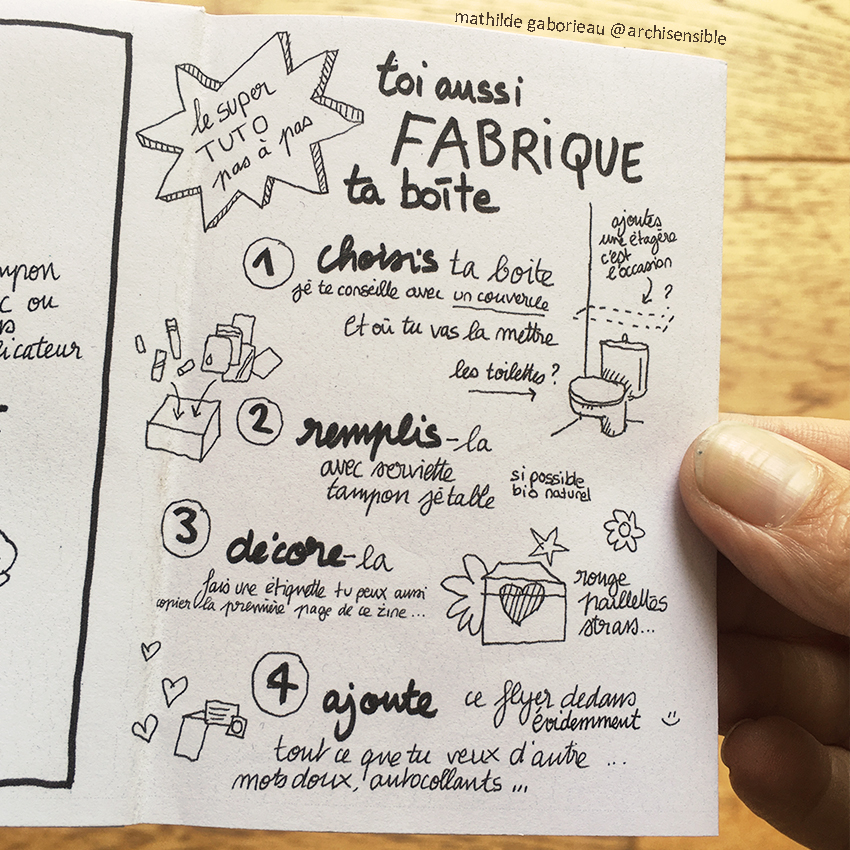 mathilde gaborieau @archisensible
mpon
c ou
s
licateur
le super
TUTO
pas à pas
toi aussi
FABRIQUE
ta boîte
1 choisis ta boite
je te conseille avec un couvercle
Et où tu vas la mettre
les toilettes?
ajoutes
une étagère
c'est
l'occasion
?
2 remplis-la
avec serviette
tampon jetable
si possible
bio naturel
3 décore-la
fais une étiquette tu peux aussi
copier la première page de ce zine...
rouge
paillettes
strass...
4 ajoute ce flyer dedans
évidemment
tout ce que tu veux d'autre ...
mots doux, autocollants ...